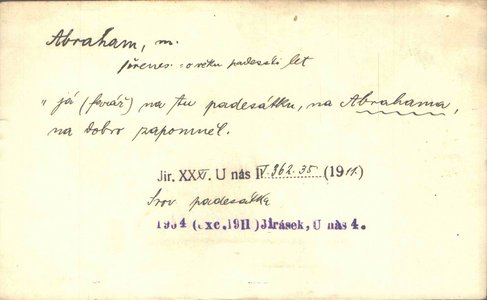 Abraham, m.
přenes. o věku padesáti let
"já (farář) na tu padesátku, na Abrahama,
na dobro zapomněl.
Jir. XXXVI. U nás IV. 362.35 (1911.)
Srov padesátka
1904 (exc.1911)Jirásek, U nás 4.